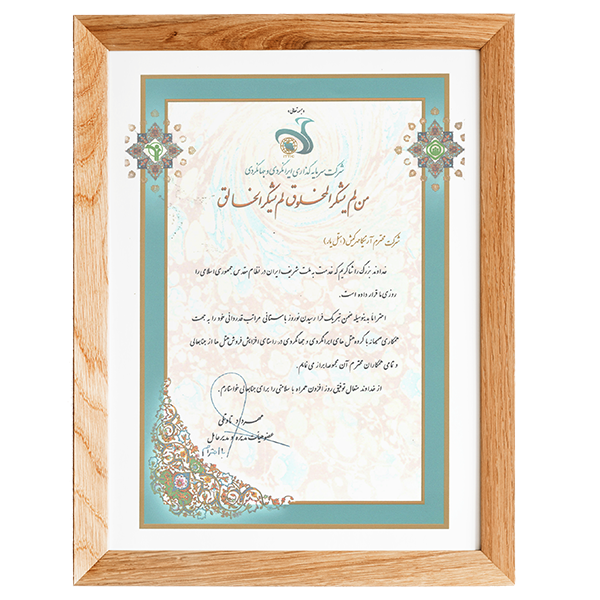 بسمه تعالی
شرکت سرمایه گذاری ایرانگردی و جهانگردی
من لم یشکر المخلوق لم یشکر الخالق
شرکت محترم آرتیکا مهر کیش (هتل یار)
خداوند بزرگ را شاکریم که خدمت به ملت شریف ایران در نظام مقدس جمهوری اسلامی را
روزی ما قرار داده است.
احتراما بدینوسیله ضمن تبریک فرا رسیدن نوروز باستانی مراتب قدردانی خود را به جهت
همکاری صمیمانه با گروه هتل های ایرانگردی و جهانگردی در راستای افزایش فروش هتل ها از جنابعالی
و تمامی همکاران محترم آن مجموعه ابراز می نمایم.
از خداوند متعال توفیق روز افزون همراه با سلامتی را برای جنابعالی خواستارم.
مهرداد
عضو هیات مدیره و مدیر عامل